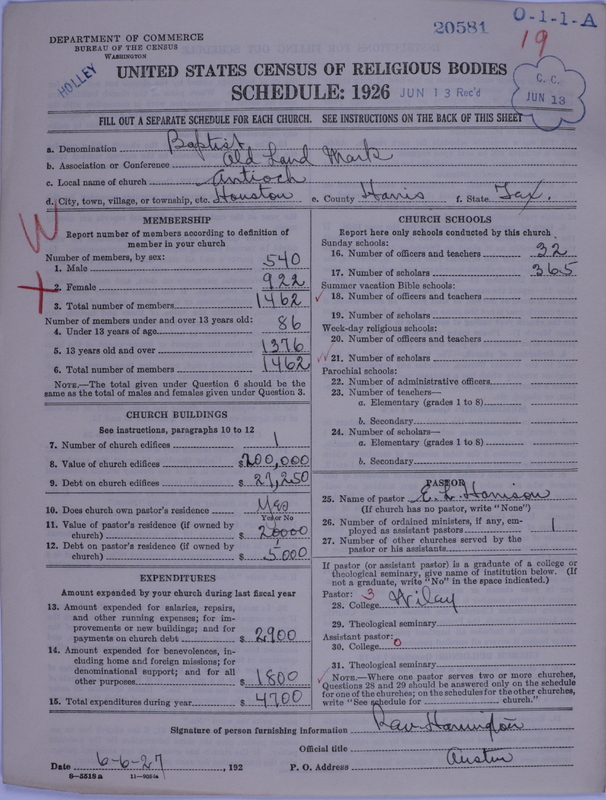 20581
O-1-1-A
19
DEPARTMENT OF COMMERCE
BUREAU OF THE CENSUS
WASHINGTON
HOLLEY
UNITED STATES CENSUS OF RELIGIOUS BODIES
SCHEDULE: 1926
JUN 13 Rec'd
C. C.
JUN 13
FILL OUT A SEPARATE SCHEDULE FOR EACH CHURCH. SEE INSTRUCTIONS ON THE BACK OF THIS SHEET
a. Denomination Baptist
b. Association or Conference Old Land Mark
c. Local name of church Antioch
d. City, town, village, or township, etc. Houston e. County Harris f. State Tex.
W
MEMBERSHIP
Report number of members according to definition of
member in your church
Number of members, by sex:
1. Male 540
2. Female 922
3. Total number of members 1462
Number of members under and over 13 years old:
4. Under 13 years of age 86
5. 13 years old and over 1376
6. Total number of members 1462
NOTE.—The total given under Question 6 should be
the same as the total of males and females given under Question 3.
CHURCH BUILDINGS
See instructions, paragraphs 10 to 12
7. Number of church edifices 1
8. Value of church edifices $200,000
9. Debt on church edifices $27,250
10. Does church own pastor's residence? Yes
Yes or No
11. Value of pastor's residence (if owned by
church) $20000
12. Debt on pastor's residence (if owned by
church) $5000
EXPENDITURES
Amount expended by your church during last fiscal year
13. Amount expended for salaries, repairs,
and other running expenses; for im-
provements or new buildings; and for
payments on church debt $2900
14. Amount expended for benevolences, in-
cluding home and foreign missions; for
denominational support; and for all
other purposes $1800
15. Total expenditures during year $4700
CHURCH SCHOOLS
Report here only schools conducted by this church
Sunday schools:
16. Number of officers and teachers 32
17. Number of scholars 365
Summer vacation Bible schools:
18. Number of officers and teachers
19. Number of scholars
Week-day religious schools:
20. Number of officers and teachers
21. Number of scholars
Parochial schools:
22. Number of administrative officers
23. Number of teachers—
a. Elementary (grades 1 to 8)
b. Secondary
24. Number of scholars—
a. Elementary (grades 1 to 8)
b. Secondary
PASTOR
25. Name of pastor E. L. Harrison
(If church has no pastor, write "None")
26. Number of ordained ministers, if any, em-
ployed as assistant pastors 1
27. Number of other churches served by the
pastor or his assistants
If pastor (or assistant pastor) is a graduate of a college or
theological seminary, give name of institution below. (If
not a graduate, write "No" in the space indicated.)
Pastor: 3
28. College Wiley
29. Theological seminary
Assistant pastor:
30. College 0
31. Theological seminary
NOTE.—Where one pastor serves two or more churches,
Questions 28 and 29 should be answered only on the schedule
for one of the churches; on the schedules for the other churches,
write "See schedule for church."
Signature of person furnishing information Harrington
Official title
Date 6-6-27, 192 P. O. Address Austin
8-5518 a